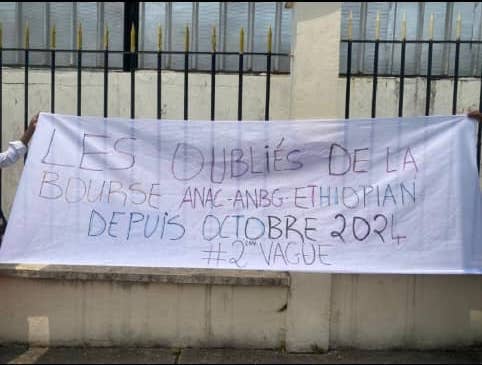 LES OUBLIÉS DE LA
BOURSE ANAC-ANBG-ETHIOPIAN
DEPUIS OCTOBRE 2024
#2ème VAGUE